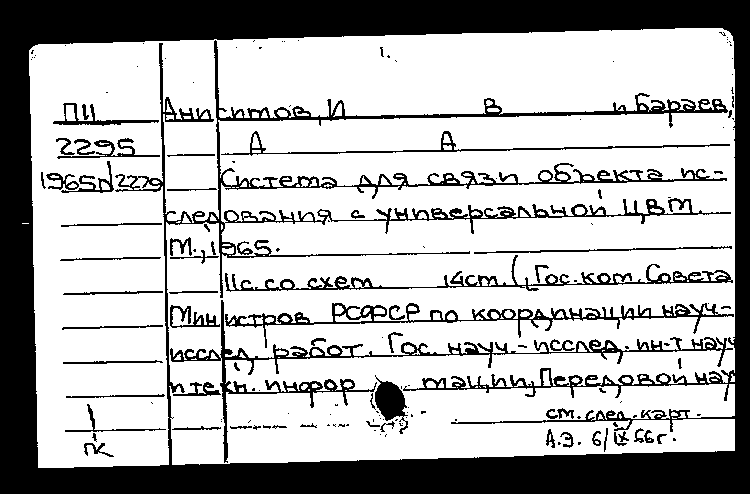 1.
ПИ Анисимов, И В и Бараев,
2295 А А
1965г/2279 Система для связи объекта ис-
следования с универсальной ЦВМ.
М., 1965.
11с. со схем. 14см. (Гос. ком. Совета
Министров РСФСР по координации науч-
исслед. работ. Гос. науч.-исслед. ин-т науч
и техн. инфор мации, Передовой нау
см. след. карт.
А.Э. 6/IX 66г.
ПК